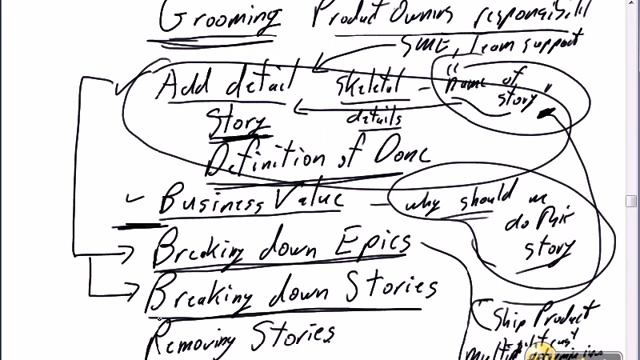 Grooming Product Owners responsibil
SME, Team support
Add detail skeletal - "name of story"
Story details
Definition of Done
Business Value - why should we do this story
Breaking down Epics
Breaking down Stories
(Ship Product
Removing Stories